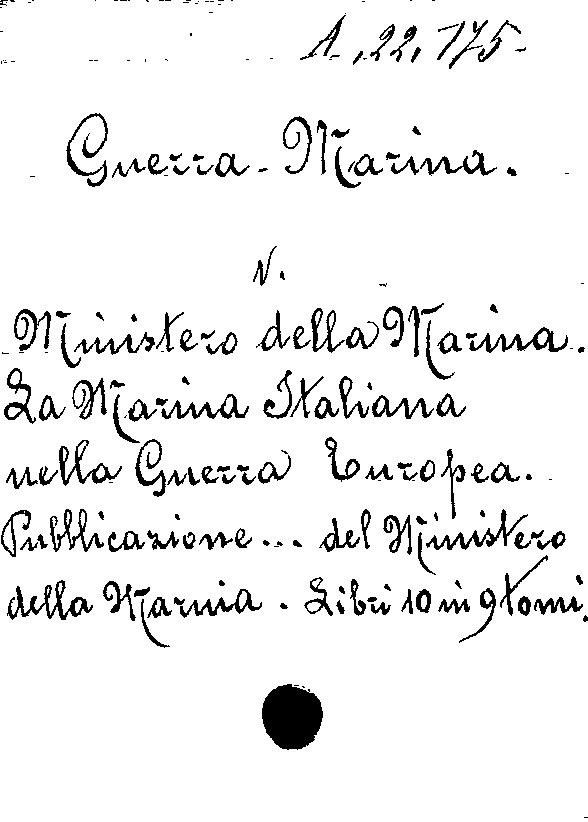 A. 22. 175-
Guerra - Marina.
V.
Ministero della Marina.
La Marina Italiana
nella Guerra Europea.
Pubblicazione ... del Ministero
della Marina. Libri 10 in 9 tomi.